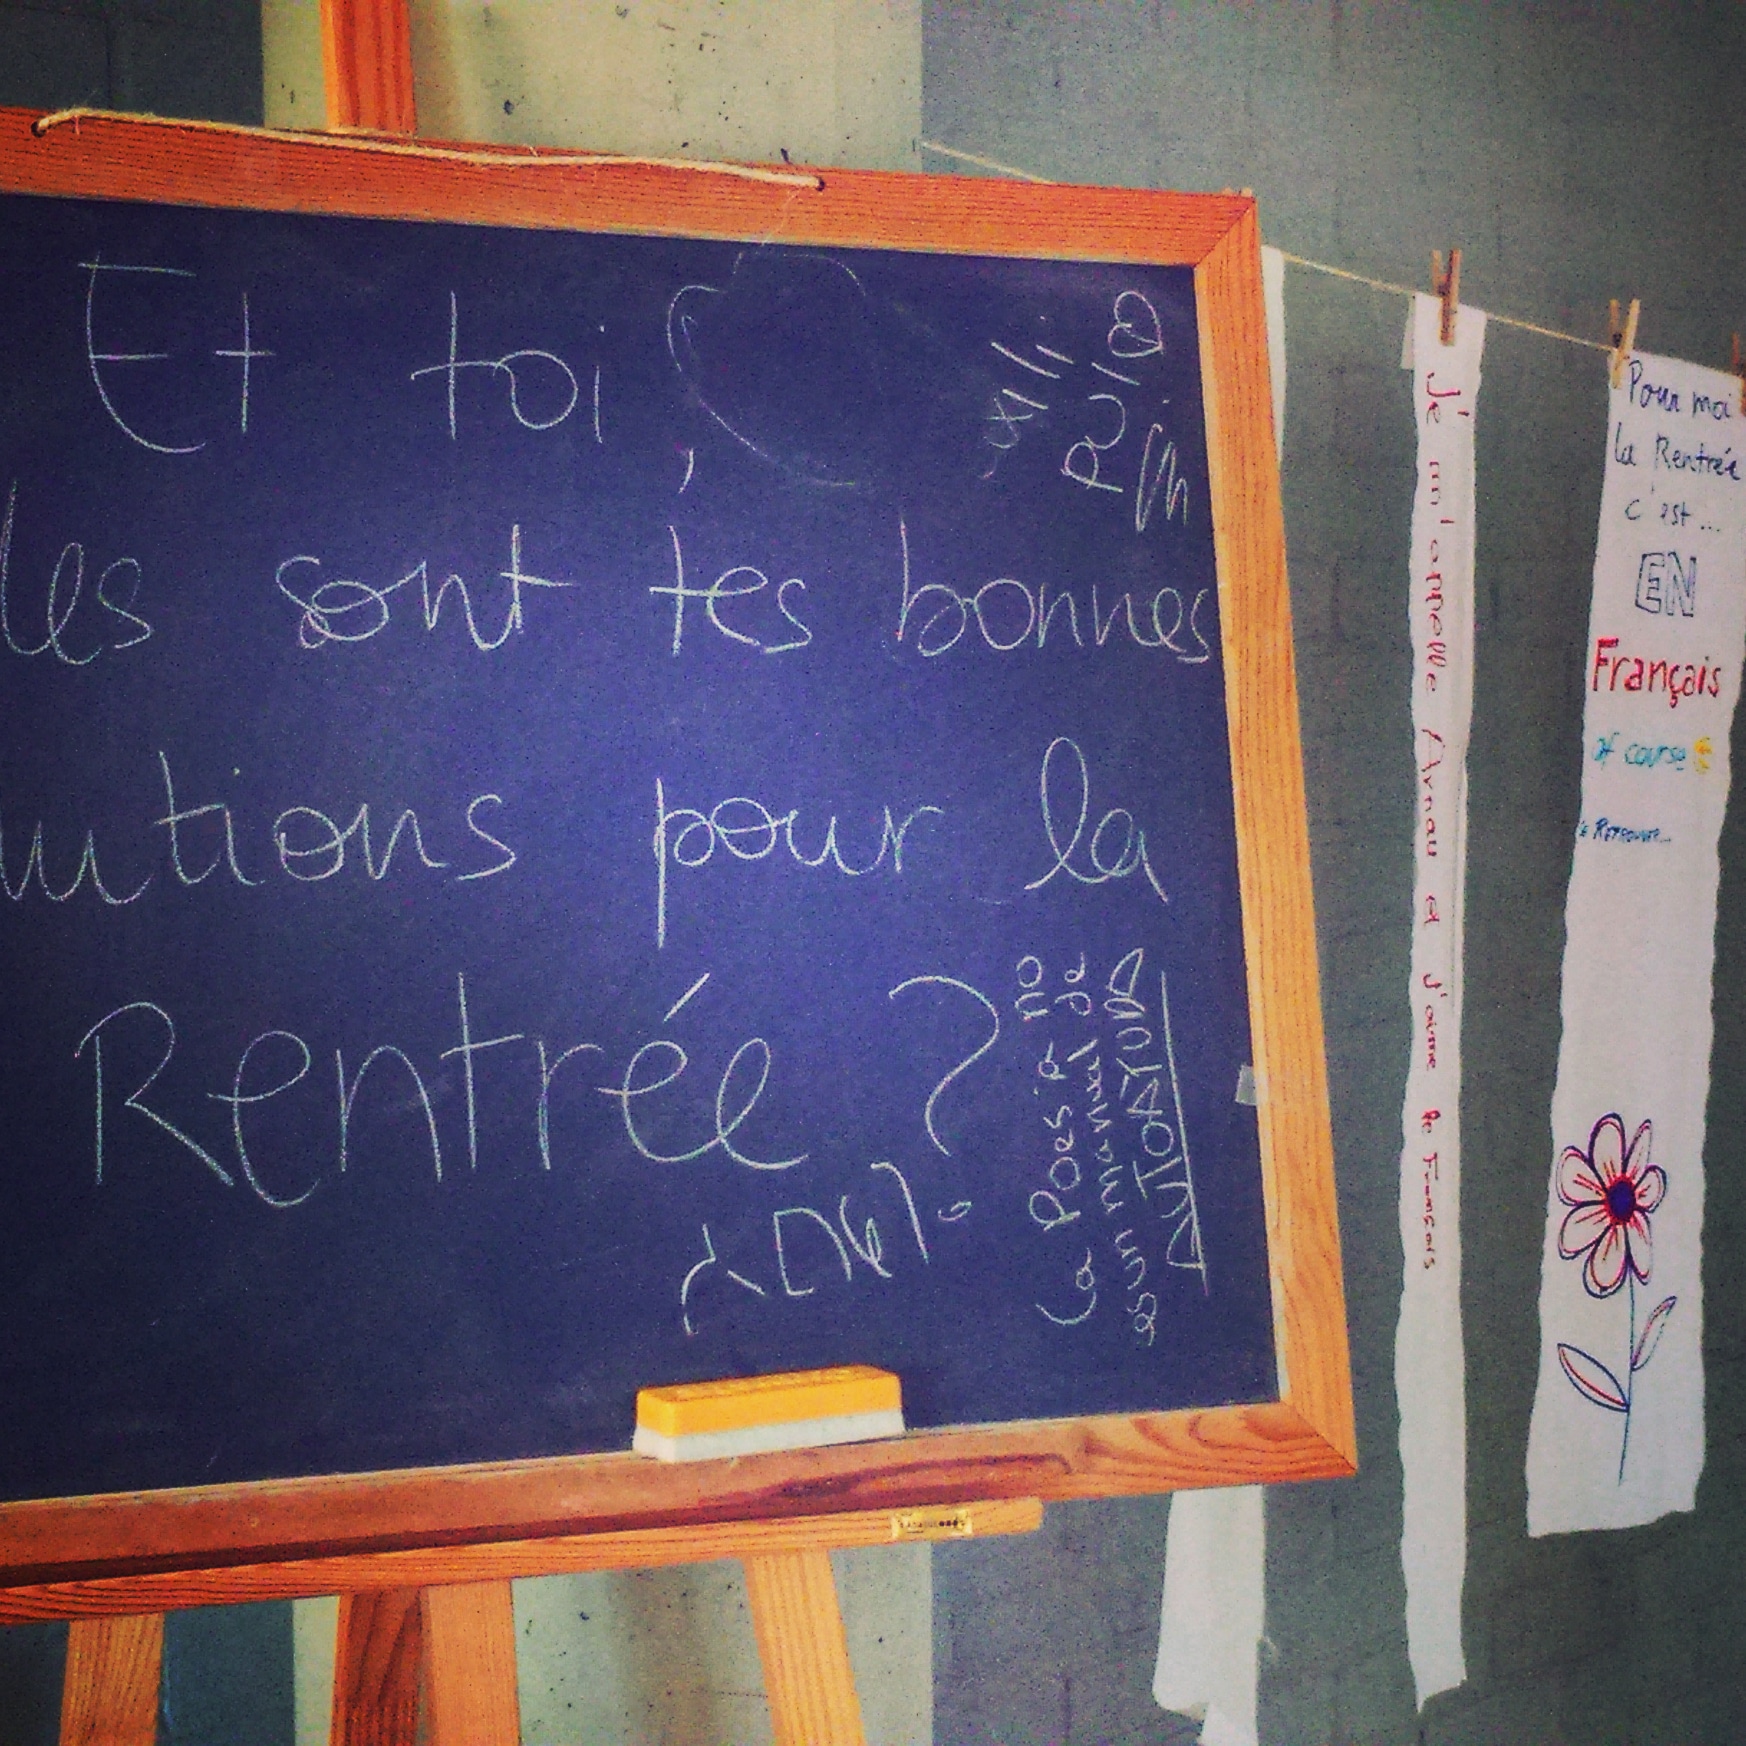 Et toi,
les sont tes bonnes
utions pour la
Rentrée ?
La Poesia no
es un manual de
AUTOAYUDA
Je m'appelle Arnau et j'aime le Français
Pour moi
la Rentrée
c'est ...
EN
Français
of course